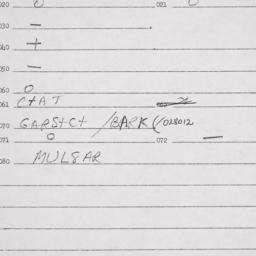 020 0 021 0
030 —
040 +
050 —
060 0
061 C+AT
070 GARS+C+ /BARK (/028012
071 0 072 —
080 MULGAR